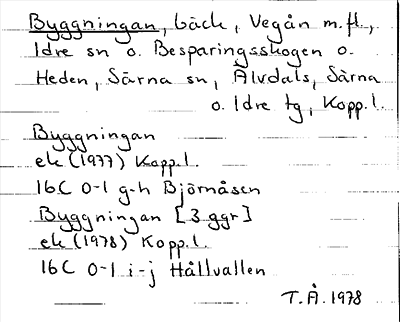 Byggningan, bäck, Vegån m.fl.,
Idre sn o. Besparingsskogen o.
Heden, Särna sn, Älvdals, Särna
o. Idre tg, Kopp.l.
Byggningan
ek (1977) Kopp.l.
16C 0-1 g-h Björnåsen
Byggningan [3 ggr]
ek (1978) Kopp.l.
16C 0-1 i-j Hållvallen
T.Å. 1978